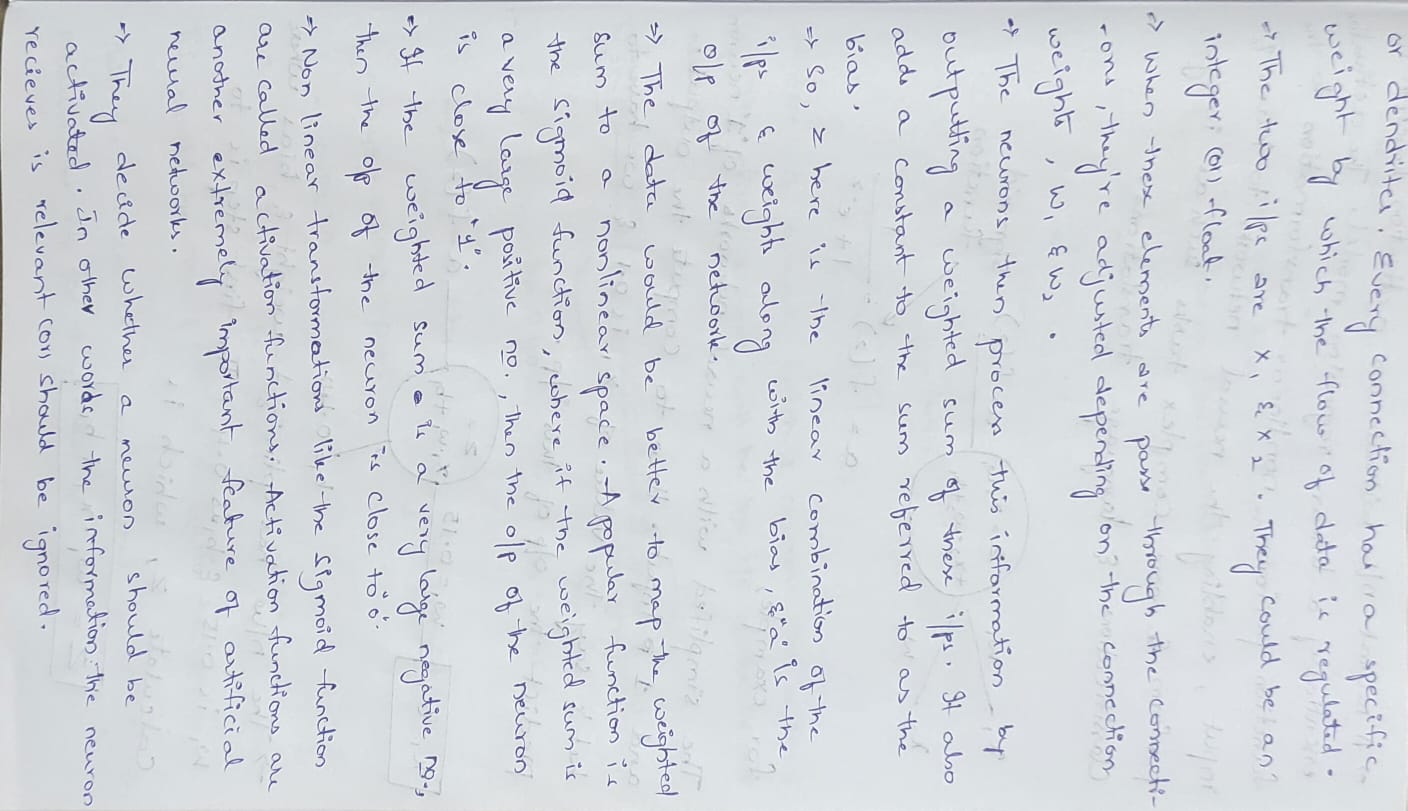 or dendrites. Every connection has a specific
weight by which the flow of data is regulated.
⇒ The two i/ps are x₁ & x₂. They could be an
integer (or) float.
⇒ When these elements are passe through the connecti-
-ons, they're adjusted depending on the connection
weights, w₁ & w₂.
⇒ The neurons then process this information by
outputting a weighted sum of these i/ps. It also
adds a constant to the sum referred to as the
bias.
⇒ So, z here is the linear combination of the
i/ps & weights along with the bias, & "a" is the
o/p of the network.
⇒ The data would be better to map the weighted
sum to a nonlinear space. A popular function is
the sigmoid function, where if the weighted sum is
a very large positive no., then the o/p of the neuron
is close to "1".
⇒ If the weighted sum is a very large negative no.,
then the o/p of the neuron is close to "0".
⇒ Non linear transformations like the sigmoid function
are called activation functions. Activation functions are
another extremely important feature of artificial
neural networks.
⇒ They decide whether a neuron should be
activated. In other words, the information the neuron
recieves is relevant (or) should be ignored.